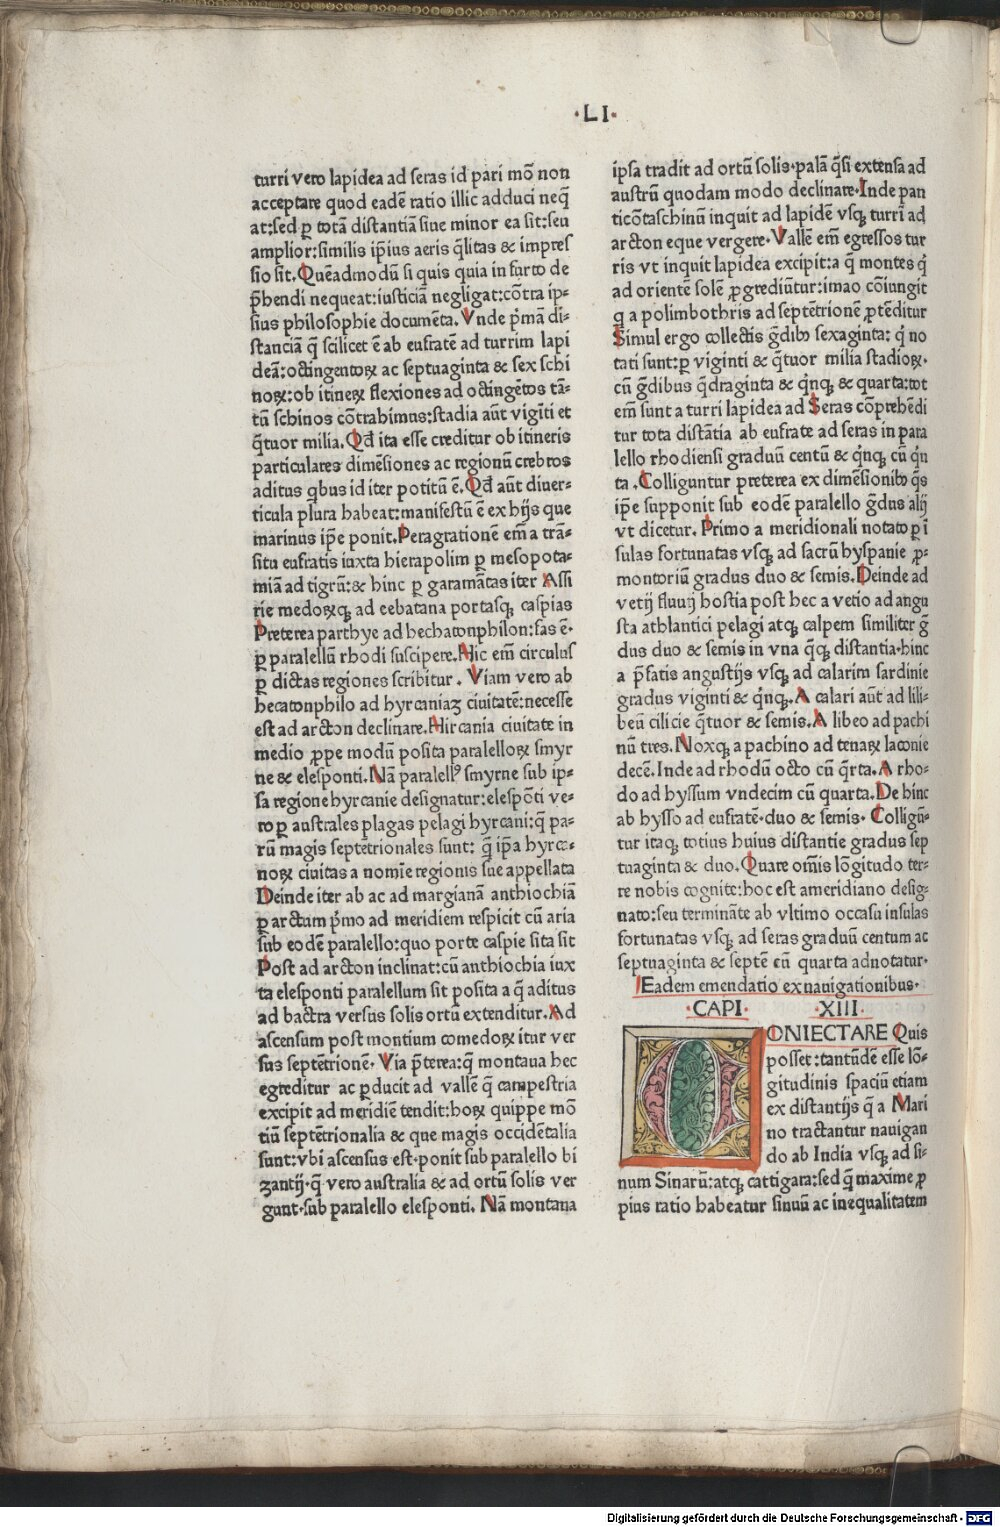 ·LI·
turri vero lapidea ad seras id pari mō non
acceptare quod eadē ratio illic adduci neq̄
at:sed ꝑ totā distantiā siue minor ea sit:seu
amplior:similis ip̄ius aeris q̄litas & impres
sio sit. Quēadmodū si quis quia in furto de
p̄hendi nequeat:iusticiā negligat:cōtra ip-
sius philosophie documēta. Vnde p̄mā di-
stanciā q̄ scilicet ē ab eufratē ad turrim lapi
deā:octingentoꝝ ac septuaginta & sex schi
noꝝ:ob itineꝝ flexiones ad octingētos tā-
tū schinos cōtrahimus:stadia aūt vigīti et
q̄tuor milia. Qđ ita esse creditur ob itineris
particulares dimēsiones ac regionū crebros
aditus qbus id iter potitū ē. Qđ aūt diuer-
ticula pl̄ura habeat:manifestū ē ex hijs que
marinus ip̄e ponit. Peragrationē em̄ a trā-
situ eufratis iuxta hierapolim ꝑ mesopota-
miā ad tigrū:& hinc ꝑ garamātas iter Assi
rie medoꝝqꝫ ad ecbatana portasqꝫ caspias
Preterea parthye ad hechatonphilon:fas ē·
ꝑ parallelū rhodi suscipere. Hic em̄ circulus
ꝑ dictas regiones scribitur. Viam vero ab
hecatonphilo ad hyrcaniaꝫ ciuitatē:necesse
est ad arcton declinare. Hircania ciuitate in
medio ꝓpe modū posita paralleloꝝ smyr
ne & elesponti. Nā parallelꝰ smyrne sub ip-
sa regione hyrcanie designatur:elespōti ve-
ro ꝑ australes plagas pelagi hyrcani:q̄ pa-
rū magis septētrionales sunt: q̄ ip̄a hyrca-
noꝝ ciuitas a nomīe regionis sue appellata
Deinde iter ab ac ad margianā anthiochiā
ꝑ arctum p̄mo ad meridiem respicit cū aria
sub eodē paralello:quo porte caspie sita sit
Post ad arcton inclinat:cū anthiochia iux
ta elesponti parallelum sit posita a q̄ aditus
ad bactra versus solis ortū extenditur. Ad
ascensum post montium comedoꝝ itur ver
sus septētrionē. Via p̄terea:q̄ montana hec
egreditur ac ꝑducit ad vallē q̄ campestria
excipit ad meridiē tendit:hoꝝ quippe mō
tiū septētrionalia & que magis occidētalia
sunt:vbi ascensus est·ponit sub paralello bi
zantij·q̄ vero australia & ad ortū solis ver
gunt·sub paralello elesponti. Nā montana
ipsa tradit ad ortū solis·palā q̄si extensa ad
austrū quodam modo declinare. Inde pan
ticōtaschinū inquit ad lapidē vsqꝫ turrī ad
arcton eque vergere. Vallē em̄ egressos tur
ris vt inquit lapidea excipit:a q̄ montes q̄
ad orientē solē ꝓgrediūtur:imao cōiungit
q a polimbothris ad septētrionē ꝓtēditur
Simul ergo collectis ḡdibꝰ sexaginta: q̄ no
tati sunt:ꝑ viginti & q̄tuor milia stadioꝝ·
cū ḡdibus q̄draginta & q̄nqꝫ & quarta:tot
em̄ sunt a turri lapidea ad Seras cōprehēdi
tur tota distātia ab eufrate ad seras in para
lello rhodiensi graduū centū & q̄nqꝫ cū q̄n
ta . Colliguntur preterea ex dimēsionibꝰ q̄s
ip̄e supponit sub eodē paralello ḡdus alij
vt dicetur. Primo a meridionali notato ꝑ ī
sulas fortunatas vsqꝫ ad sacrū hyspanie ꝓ-
montoriū gradus duo & semis. Deinde ad
vetij fluuij hostia post hec a vetio ad angu
sta athlantici pelagi atqꝫ calpem similiter ḡ
dus duo & semis in vna q̄qꝫ distantia·hinc
a p̄fatis angustijs vsqꝫ ad calarim sardinie
gradus viginti & q̄nqꝫ. A calari aūt ad lili-
beū cilicie q̄tuor & semis. A libeo ad pachi
nū tres. Noxqꝫ a pachino ad tenaꝝ laconie
decē. Inde ad rhodū octo cū q̄rta. A rho-
do ad hyssum vndecim cū quarta. De hinc
ab hysso ad eufratē·duo & semis. Colligū-
tur itaqꝫ totius huius distantie gradus sep
tuaginta & duo. Quare om̄is lōgitudo ter-
re nobis cognite:hoc est ameridiano desig-
nato:seu termināte ab vltimo occasu insulas
fortunatas vsqꝫ ad seras graduū centum ac
septuaginta & septē cū quarta adnotatur·
Eadem emendatio ex nauigationibus·
·CAPI· ·XIII·
CONIECTARE Quis
posset:tantūdē esse lō-
gitudinis spaciū etiam
ex distantijs q̄ a Mari
no tractantur nauigan
do ab India vsqꝫ ad si-
num Sinarū:atqꝫ cattigara:sed q̄ maxime ꝓ
pius ratio habeatur sinuū ac inequalitatem
Digitalisierung gefördert durch die Deutsche Forschungsgemeinschaft - DFG